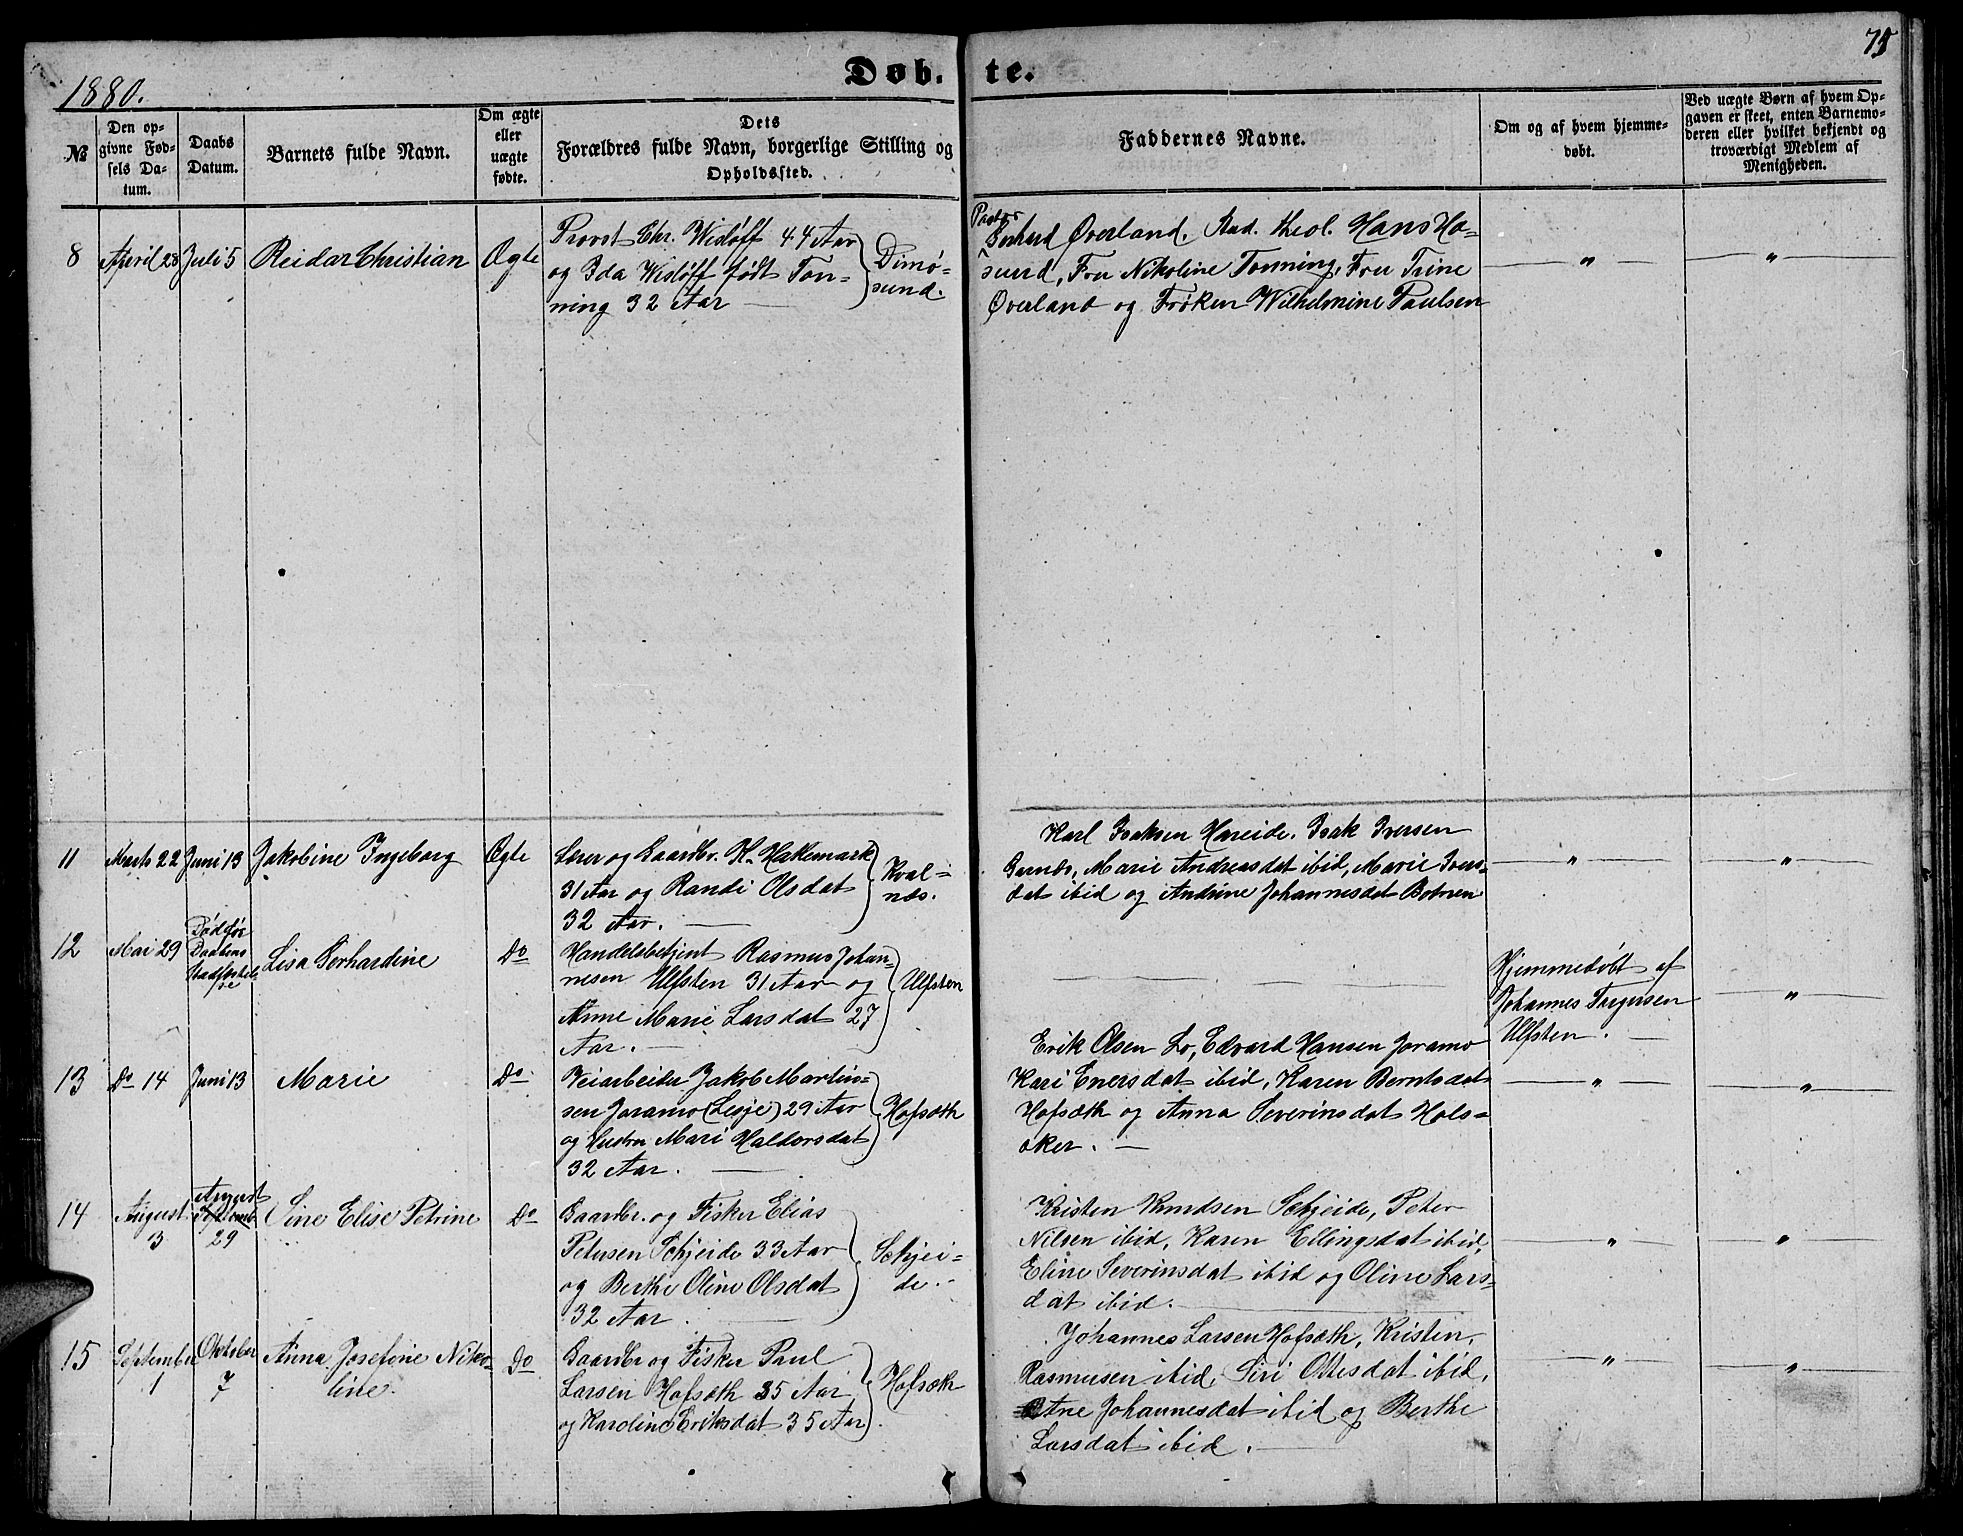 1880.
Døb-te.
75
№
Den op-
givne Fød-
sels Da-
tum.
Daabs
Datum.
Barnets fulde Navn.
Om ægte
eller
uægte
fødte.
Dets
Forældres fulde Navn, borgerlige Stilling og
Opholdssted.
Faddernes Navne.
Om og af hvem hjemme-
døbt.
Ved uægte Børn af hvem Op-
gaven er skeet, enten Barnemo-
deren eller hvilket bekjendt og
troværdigt Medlem af
Menigheden.
8
April 28
Juli 5
Reidar Christian
Ægte
Provst Chr. Wisløff 44 Aar
og Ida Wisløff født Ton-
ning 32 Aar
Dimø-
sund.
Pastor
Gerhard Øverland. Stud. theol. Hans Ha-
sund, Fru Nikoline Tonning, Fru Trine
Øverland og Frøken Wilhelmine Paulsen
"
"
11
Marts 22
Juni 13
Jakobine Ingeborg
Ægte
Lærer og Gaardbr. K. Hakemark
31 Aar og Randi Olsdat
32 Aar.
Kval-
næs.
Karl Isaksen Hareide. Isak Iversen
Garnæs, Marie Andreasdat ibid, Marie Ivers-
dat ibid og Andrine Johannesdat Botnen
"
"
12
Mai 29
Død før
Daabens
Stadfæstel-
se
Lisa Gerhardine
Do
Handelsbetjent Rasmus Johan-
nesen Ulfsten 31 Aar og
Anne Marie Larsdat 27
Aar.
Ulfsten
Hjemmedøbt af
Johannes Torgersen
Ulfsten.
"
13
Do 14
Juni 13
Marie
Do
Veiarbeider Jakob Martin-
sen Joramo (Lesje) 29 Aar
og Hustru Mari Haldorsdat
32 Aar.
Hofsæth
Erik Olsen Lo, Edvard Hansen Joramo
Kari Enersdat ibid, Karen Berntsdat
Hofsæth og Anna Severinsdat Hols-
øker.
"
"
14
August
3
August
Septemb
29
Sine Elise Petrine
Do
Gaardbr. og Fisker Elias
Petersen Schjeide 33 Aar
og Berthe Oline Olsdat
32 Aar.
Schjei-
de.
Kristen Knudsen Schjeide, Peter
Nilsen ibid, Karen Ellingsdat ibid,
Eline Severinsdat ibid og Oline Lars-
dat ibid.
"
"
15
September
1
Oktober
7
Anna Josefine Niko-
line.
Do
Gaardbr og Fisker Paul
Larsen Hofsæth 35 Aar
og Karoline Eriksdat 35 Aar
Hofsæth
Johannes Larsen Hofsæth, Kristen
Rasmusen ibid, Siri Ottesdat ibid,
Ane Johannesdat ibid og Berthe
Larsdat ibid.
"
"